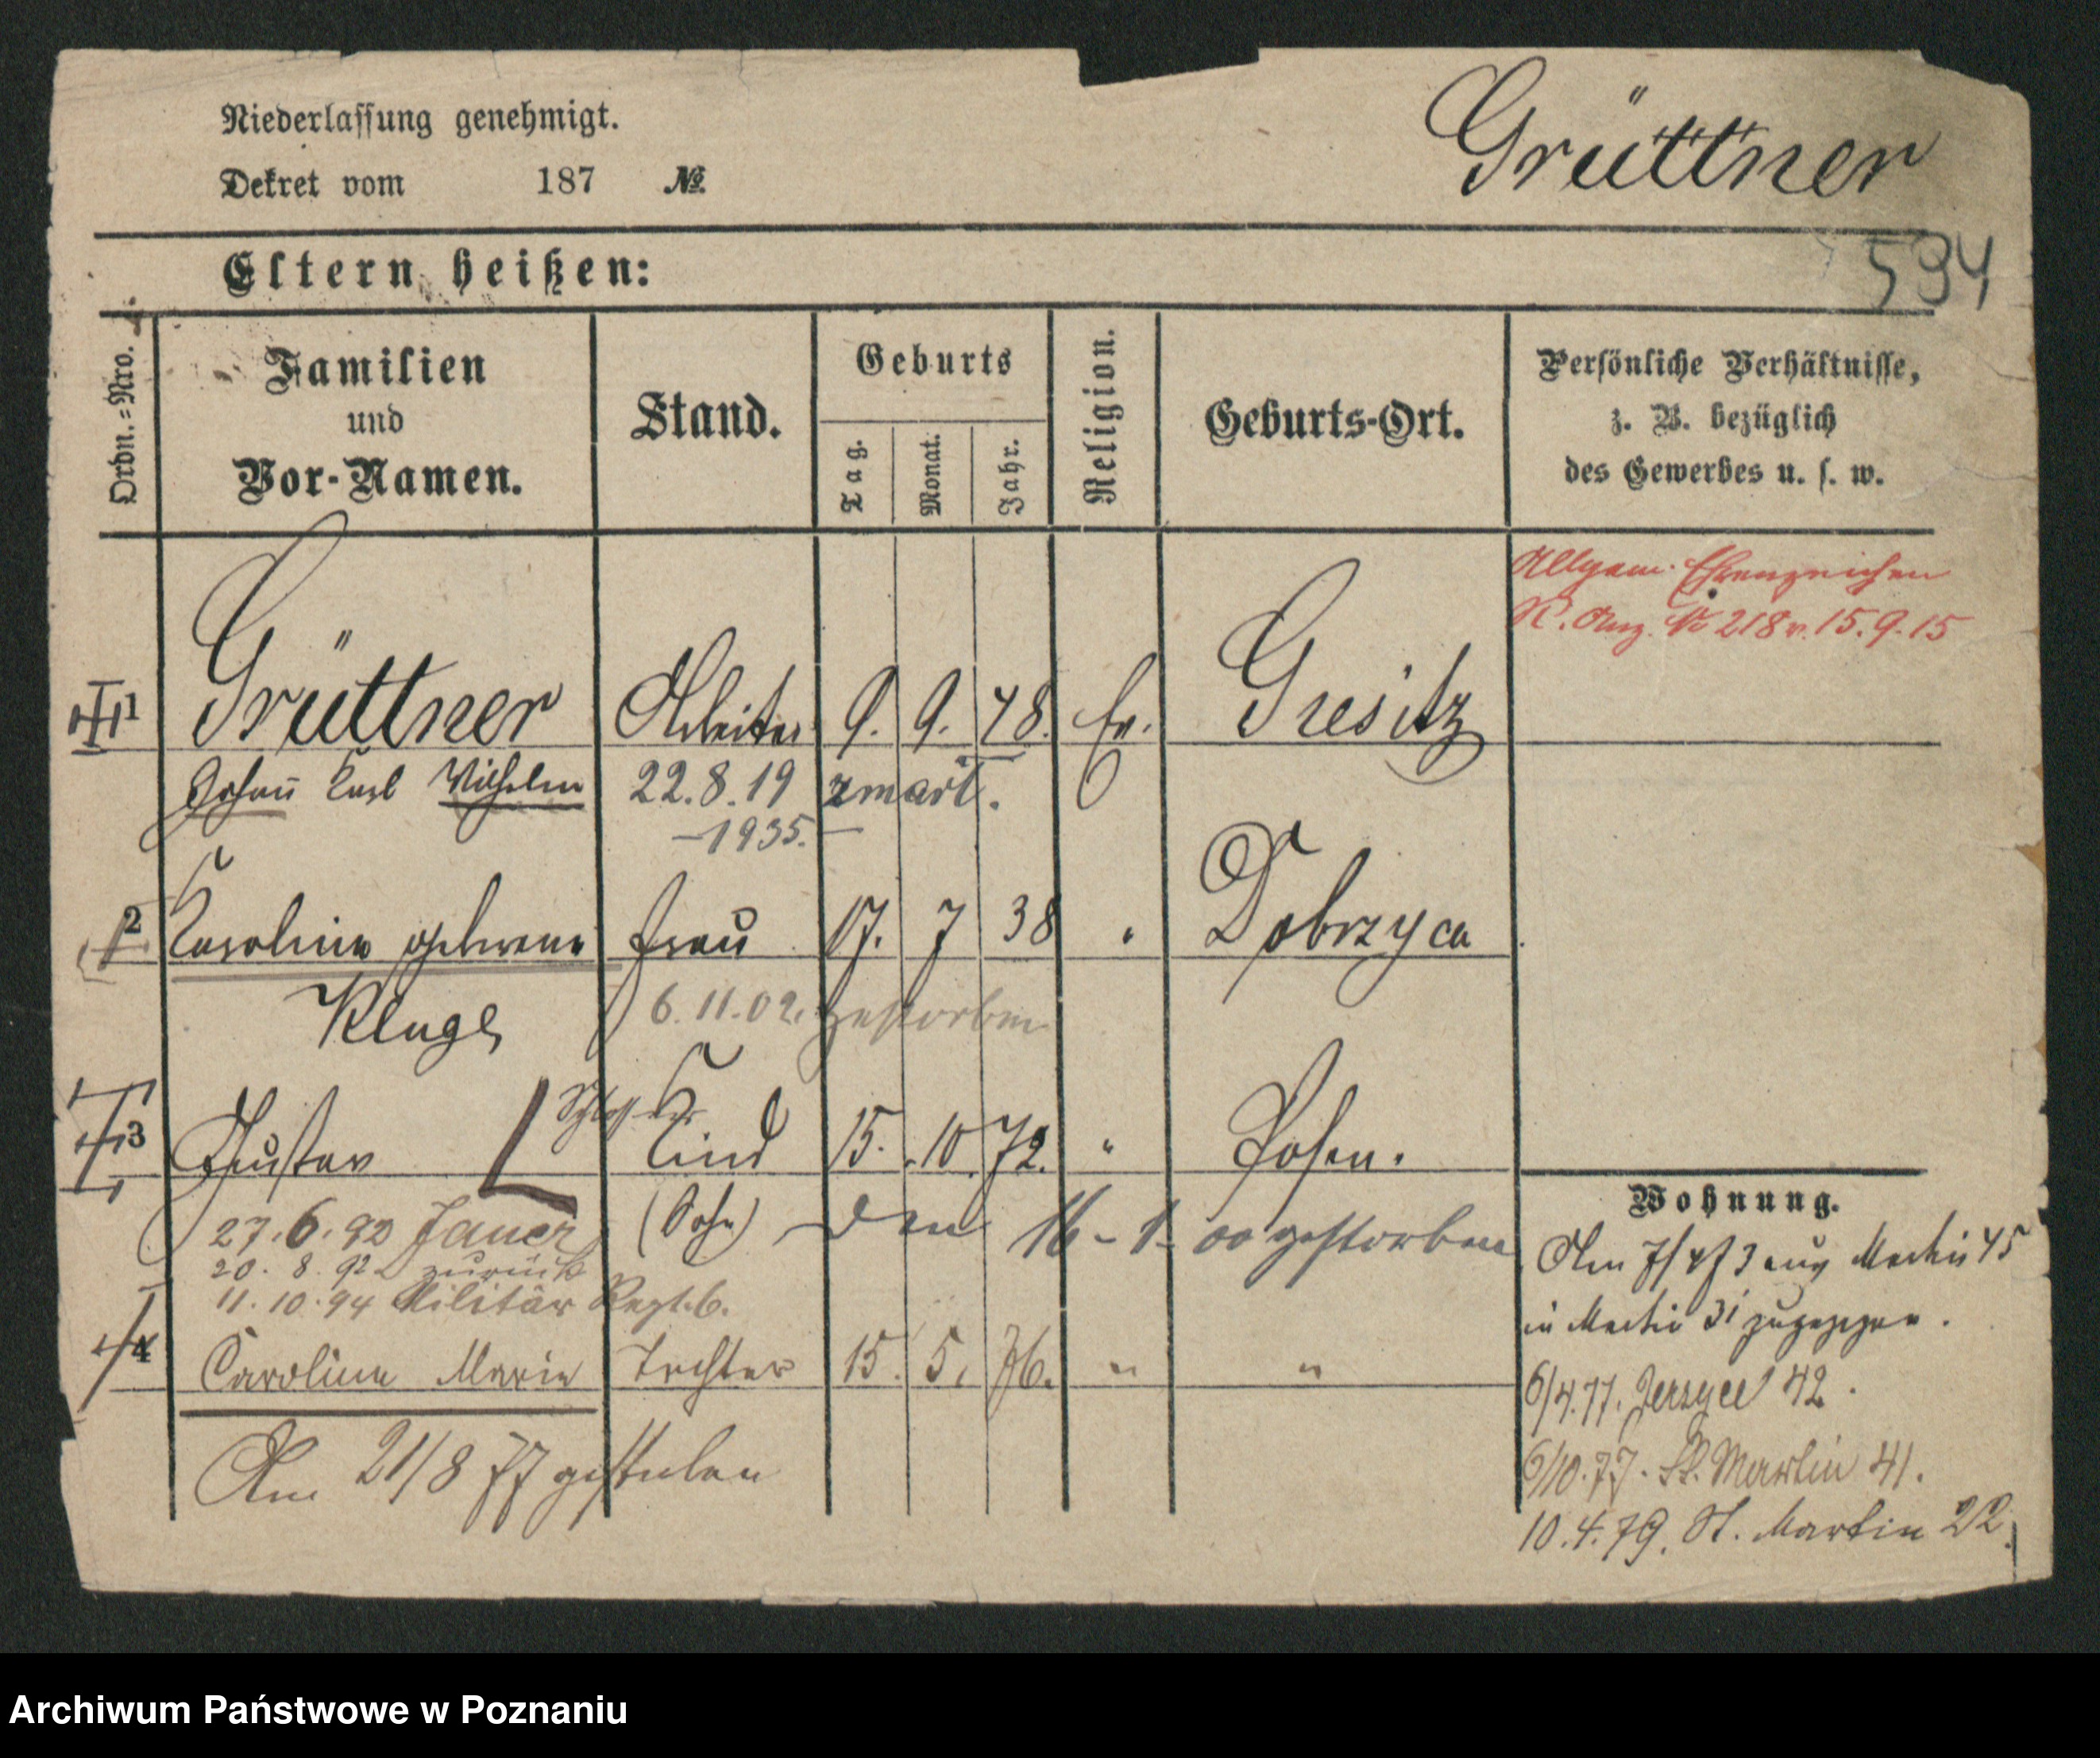 Niederlassung genehmigt.
Grüttner
Dekret vom 187 №
594
Eltern heißen:
Ordn.=Nro.
Familien und Vor-Namen.
Stand.
Geburts
Tag.
Monat.
Jahr.
Religion.
Geburts-Ort.
Persönliche Verhältnisse,
z. B. bezüglich
des Gewerbes u. s. w.
Allgem. Ehrenzeichen
R. Anz. № 218 v. 15.9.15
1 Grüttner Arbeiter 9. 9. 48. Ev. Gresitz
Johann Karl Wilhelm 22.8.19
-1935.-
2 Karoline geborene Frau 17. 7 38 " Dobrzyca
Kluge 6.11.02. gestorben
Schlosser
3 Gustav Kind 15. 10. 72. " Posen.
27.6.92 Jauer (Sohn) den 16-1-00 gestorben
20. 8. 92 zurück
11.10.94 Militär Regt. 6.
4 Caroline Marie Tochter 15. 5. 76. " "
Am 21/8 77 gestorben
Wohnung.
Am 7/4 73 aus Martin 45
in Martin 31 zugezogen.
6/4.77. Jerzyce 42.
6/10.77. St. Martin 41.
10.4.79. St. Martin 22.
Archiwum Państwowe w Poznaniu